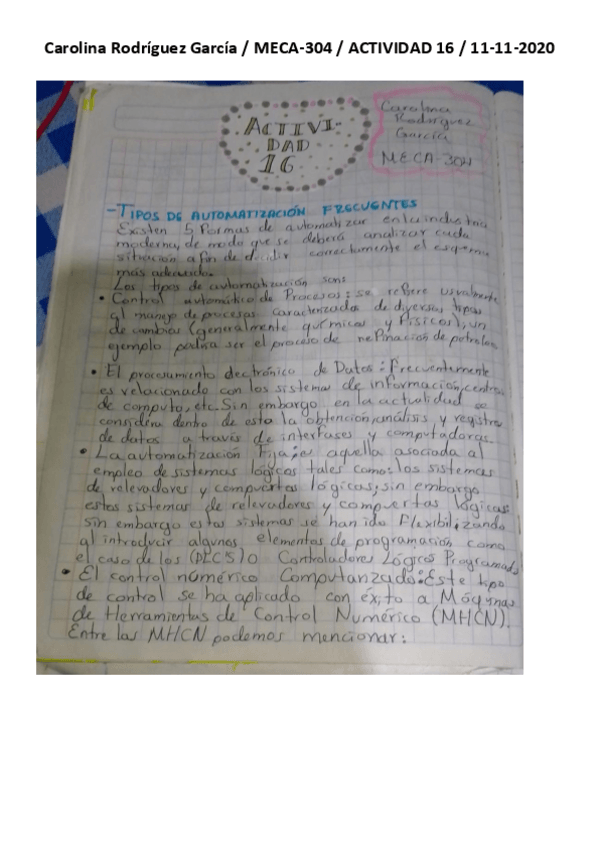 Carolina Rodríguez García / MECA-304 / ACTIVIDAD 16 / 11-11-2020
ACTIVI-
DAD
16
Carolina
Rodríguez
García
MECA-304
-TIPOS DE AUTOMATIZACIÓN FRECUENTES
Existen 5 Formas de automatizar en la industria
moderna, de modo que se deberá analizar cada
situación a fin de decidir correctamente el esquema
más adecuado.
Los tipos de automatización son:
• Control automático de Procesos: se refiere usualmente
al manejo de procesos caracterizados de diversos tipos
de cambios (generalmente químicos y físicos); un
ejemplo podría ser el proceso de refinación de petroleo
• El procesamiento electrónico de Datos: Frecuentemente
es relacionado con los sistemas de información, centros
de computo, etc. Sin embargo en la actualidad se
considera dentro de esto la obtención, análisis y registro
de datos a través de interfases y computadoras.
• La automatización Fija: es aquella asociada al
empleo de sistemas lógicos tales como: los sistemas
de relevadores y compuertas lógicas; sin embargo
estos sistemas de relevadores y compuertas lógicas
sin embargo estos sistemas se han ido flexibilizando
al introducir algunos elementos de programación como
el caso de los (PLC'S) O Controladores Lógicos Programab
• El control númerico Computarizado: Este tipo
de control se ha aplicado con éxito a Máquinas
de Herramientas de Control Numérico (MHCN).
Entre las MHCN podemos mencionar: